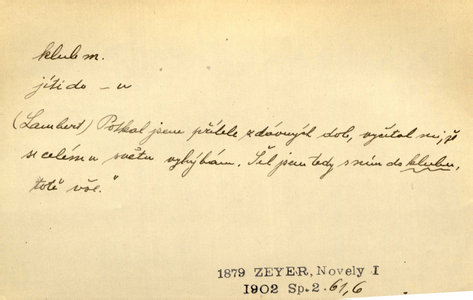 klub m.
jíti do – u
(Lambert) Potkal jsem přítele z dávných dob, vyčítal mi, že
se celému světu vyhýbám. Šel jsem tedy s ním do klubu,
totě vše."
1879 ZEYER, Novely I
1902 Sp. 2. 61,6